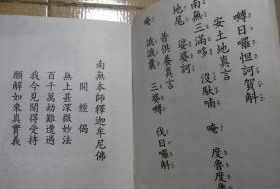 嚩日囉怛訶賀斛
安土地真言
南無三滿哆 沒馱喃 唵 度嚕度嚕
地尾 娑婆訶
普供養真言
唵
誐誐曩 三婆嚩 伐日囉斛
南無本師釋迦牟尼佛
開經偈
無上甚深微妙法
百千萬劫難遭遇
我今見聞得受持
願解如來真實義